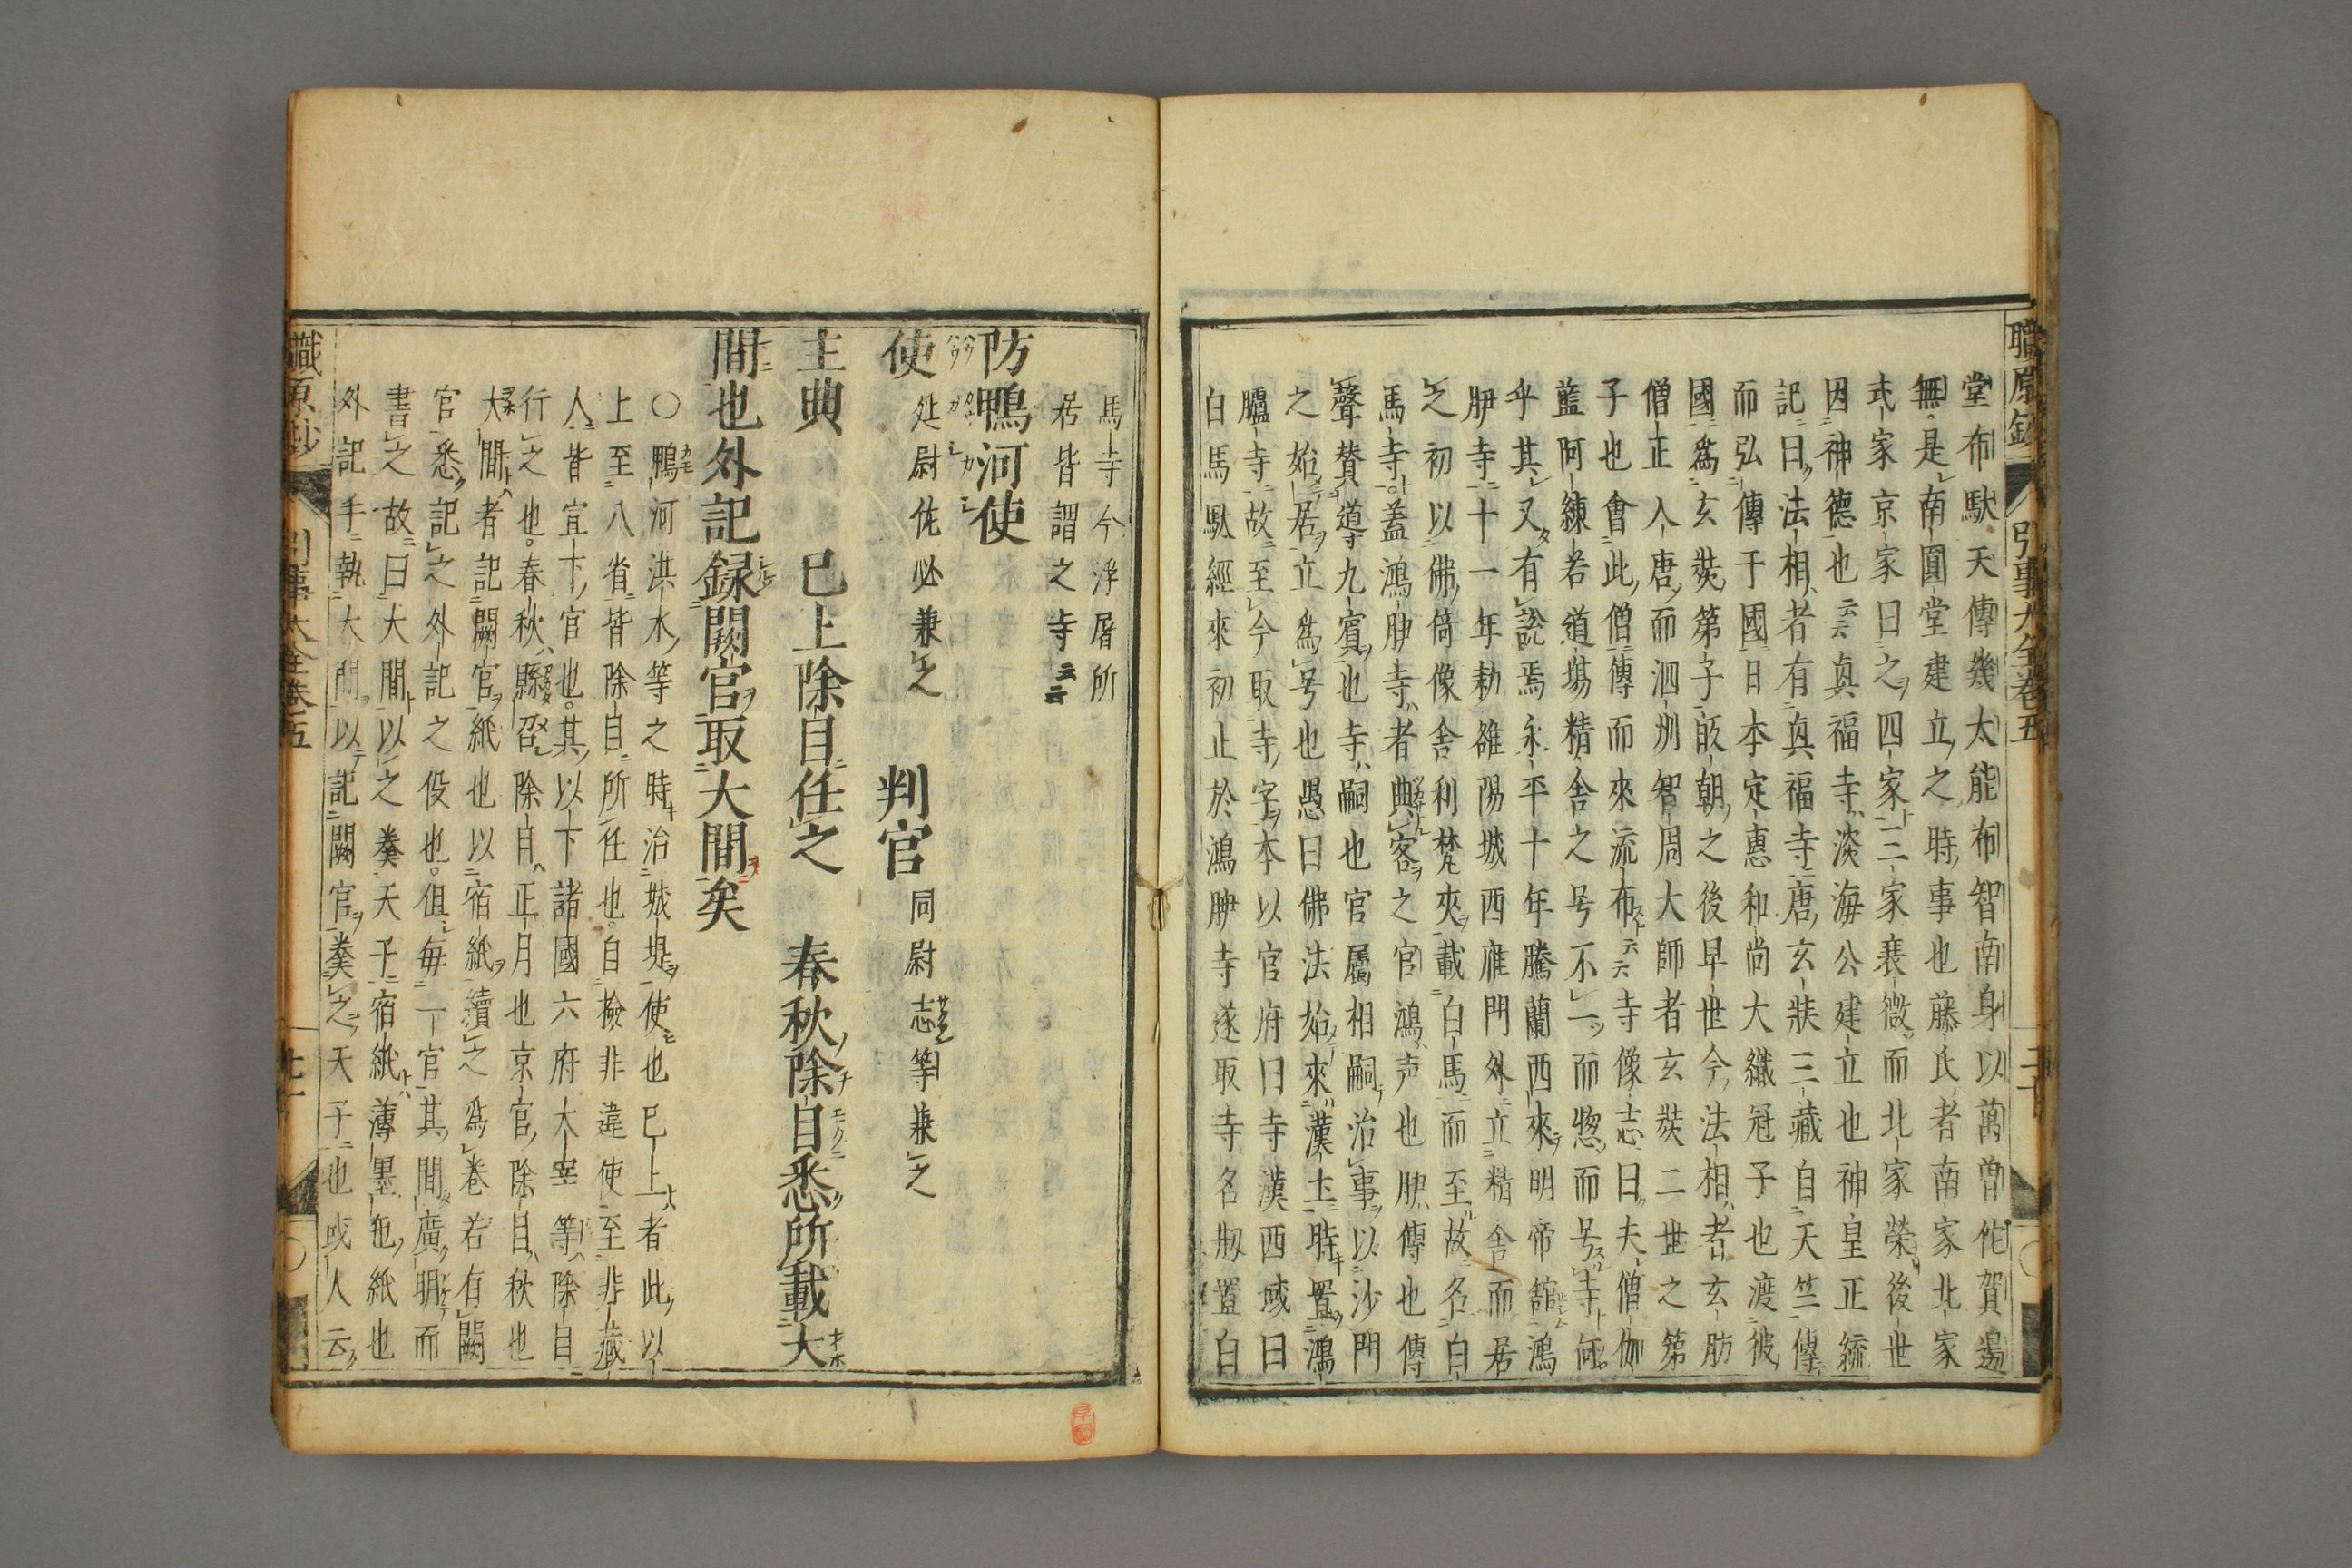 職原鈔 引事大全卷五 二十
堂布馱天傳幾太能布智南身以萬曾佗賀邊
無是南圓堂建立之時事也藤氏者南家北家
式家京家曰之四家二三家衰微而北家榮後世
因神德也云云眞福寺淡海公建立也神皇正統
記曰法相者有眞福寺唐玄奘三藏自天竺傳
而弘傳于國日本定惠和尚大織冠子也渡彼
國爲玄奘第子皈朝之後早世今法相者玄肪
僧正入唐而泗州智周大師者玄奘二世之第
子也會此僧傳而來流布云云寺像志曰夫僧伽
藍阿練若道場精舍之号不一而惣而号寺何
乎其又有說焉永平十年騰蘭西來明帝舘鴻
臚寺十一年勅雒陽城西雍門外立精舍而居
之初以佛倚像舍利梵夾載白馬而至故名白
馬寺蓋鴻臚寺者典客之官鴻声也臚傳也傳
聲賛導九賓也寺嗣也官屬相嗣治事以沙門
之始居立爲号也愚曰佛法始來漢土時置鴻
臚寺故至今取寺字本以官府曰寺漢西域曰
白馬馱經來初止於鴻臚寺遂取寺名剏置白
馬寺今浮屠所
居皆謂之寺云云
防鴨河使
使 延尉佐必兼之 判官 同尉志等兼之
主典 已上除目任之 春秋除目悉所載大
間也外記録闕官取大間矣
○鴨河洪水等之時治城堤使也已上者此以
上至八省皆除目所任也自撿非違使至非藏
人皆宣下官也其以下諸國六府大宰等除目
行之也春秋縣召除目正月也京官除目秋也
大間者記闕官紙也以宿紙續之爲卷若有闕
官悉記之外記之役也但每一官其間廣明而
書之故曰大間以之奏天子宿紙薄墨也紙也
外記手執大間以記闕官奏之天子也或人云
職原鈔 引事大全卷五 廿一